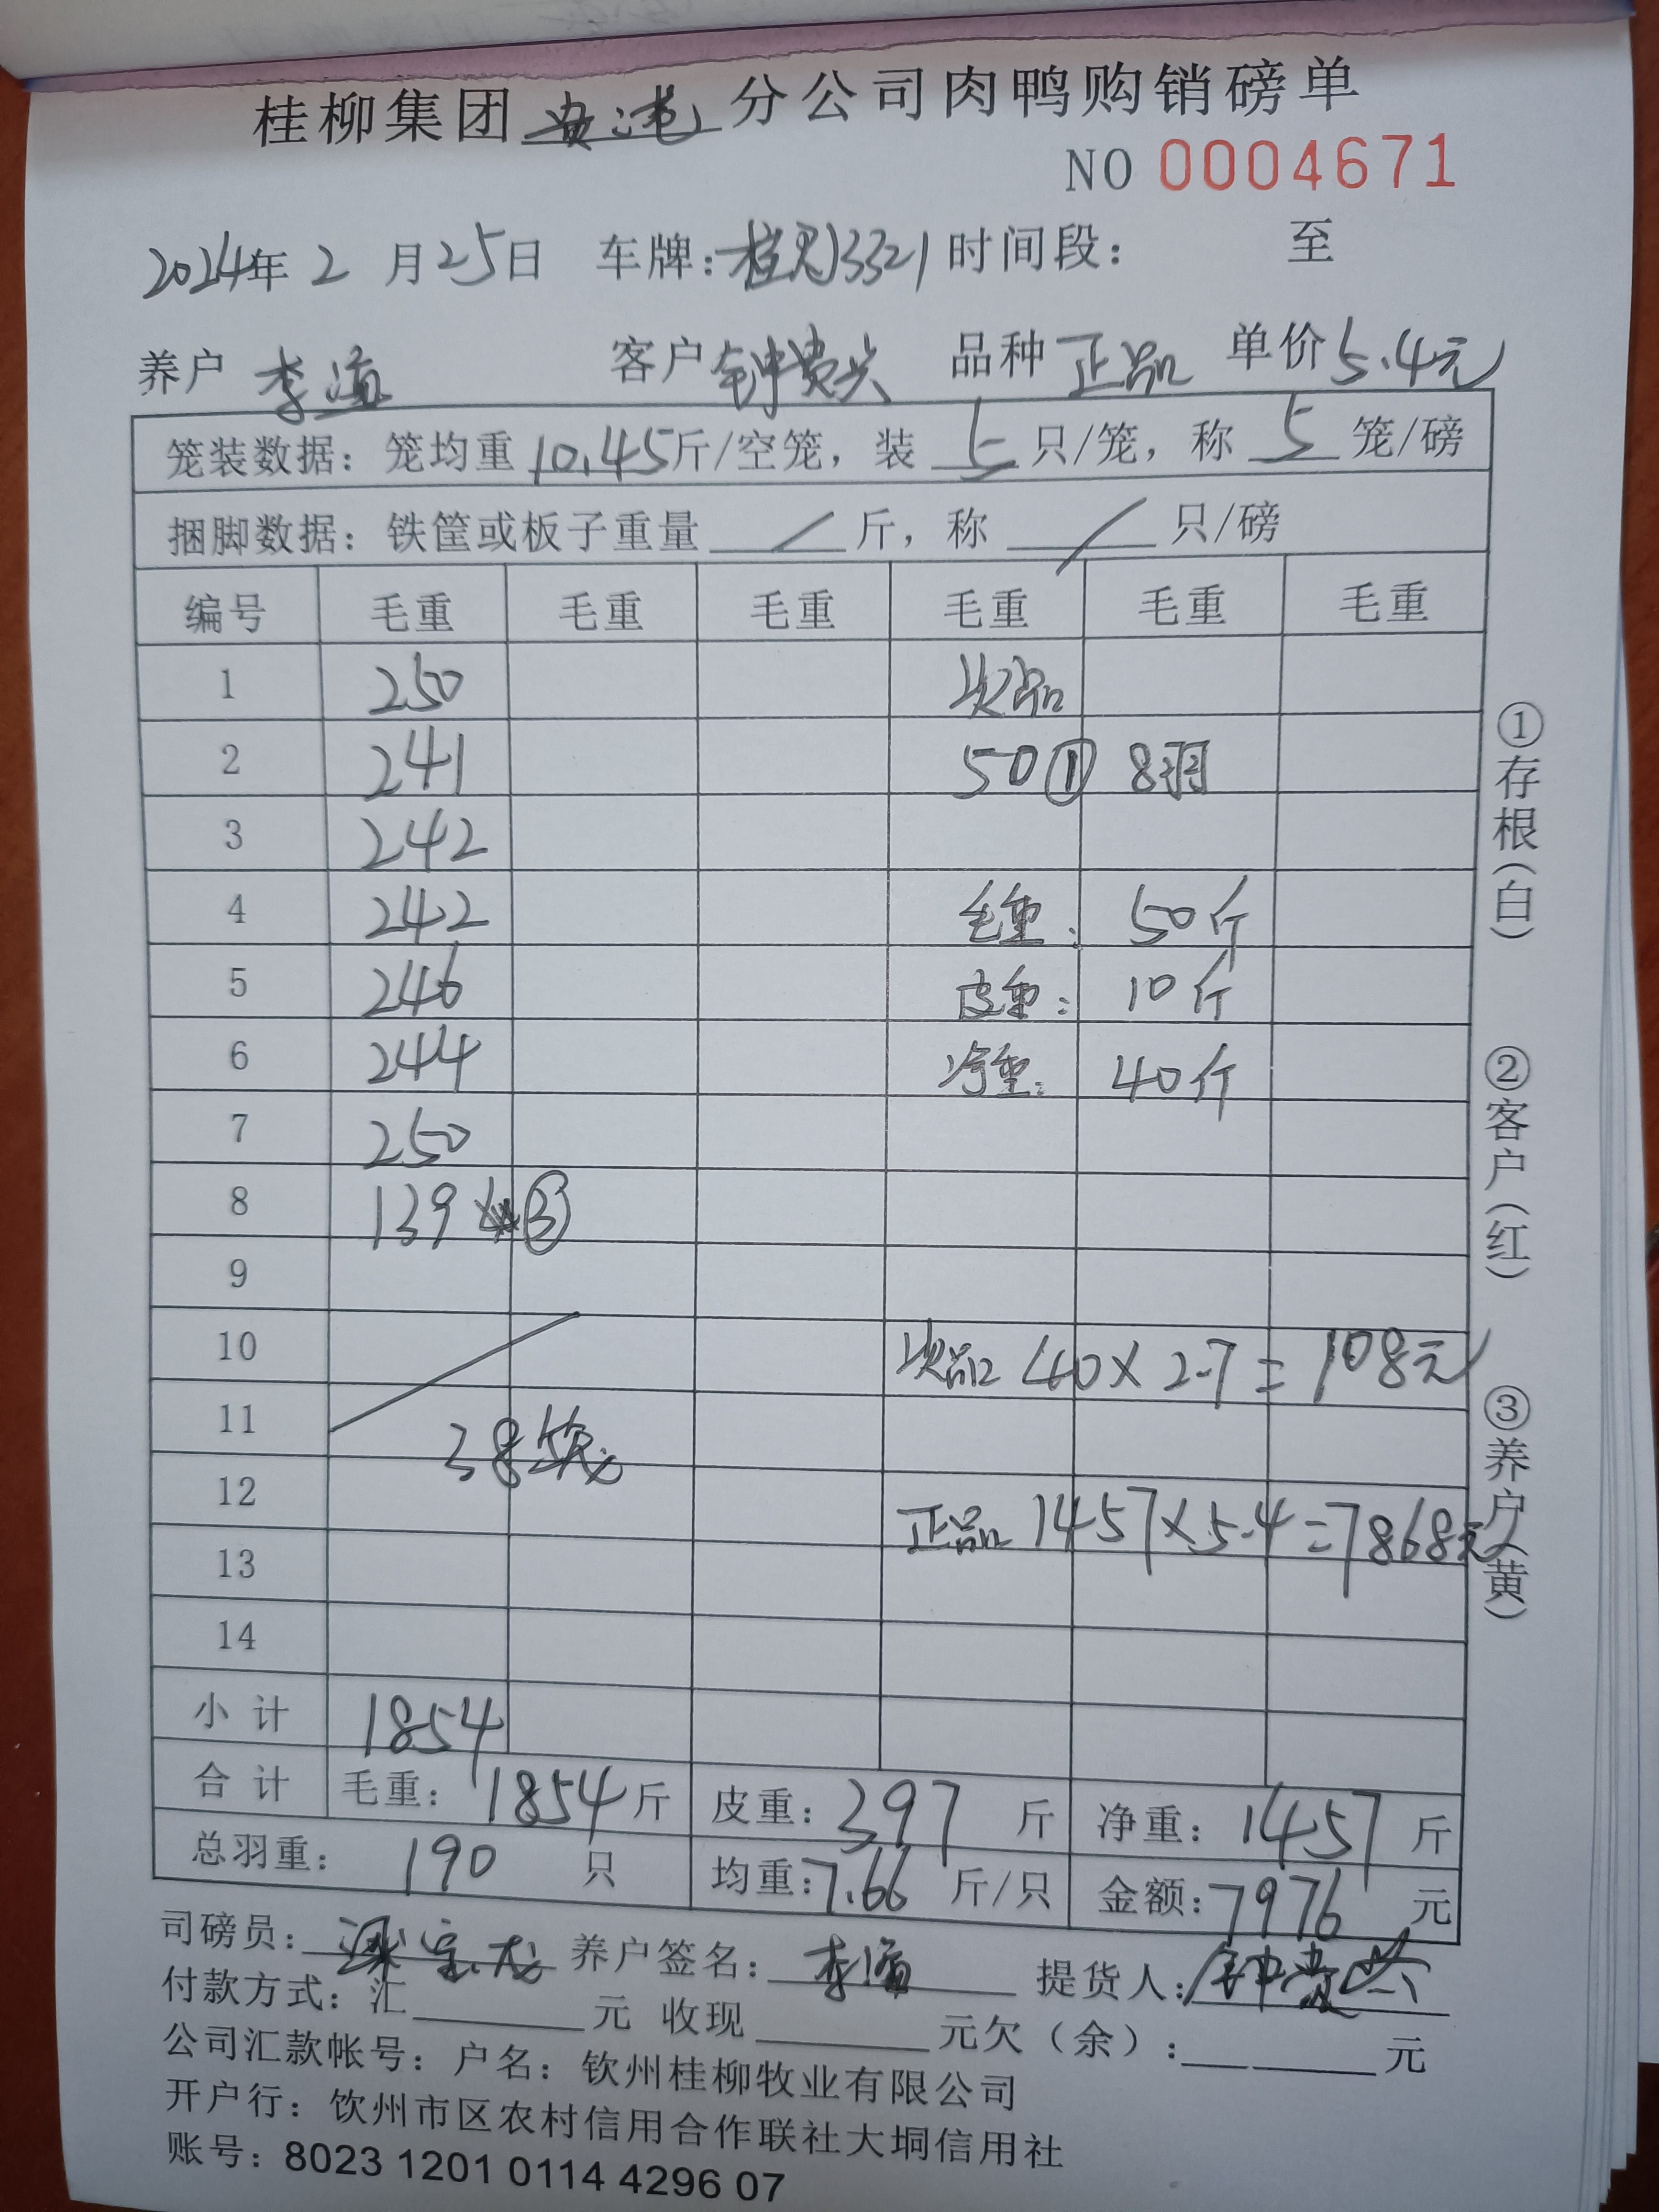 桂柳集团贵港分公司肉鸭购销磅单
NO 0004671
2024年2月25日 车牌:桂 13321 时间段: 至
养户 李 客户 钟贵兴 品种 正品 单价5.4元
笼装数据: 笼均重10.45斤/空笼, 装 5 只/笼, 称 5 笼/磅
捆脚数据: 铁筐或板子重量 / 斤, 称 / 只/磅
编号 毛重 毛重 毛重 毛重 毛重 毛重
1 250 次品
2 241 50① 8羽
3 242
4 242 毛重: 50斤
5 246 皮重: 10斤
6 244 净重: 40斤
7 250
8 139 ③
9
10 次品 40×2.7=108元
11 38笼
12 正品 1457×5.4=7868元
13
14
小计 1854
合计 毛重: 1854斤 皮重: 397 斤 净重: 1457斤
总羽重: 190 只 均重:7.66 斤/只 金额:7976 元
司磅员: 养户签名: 李 提货人: 钟贵兴
付款方式: 汇 元 收现 元欠(余): 元
公司汇款帐号: 户名: 钦州桂柳牧业有限公司
开户行: 钦州市区农村信用合作联社大垌信用社
账号: 8023 1201 0114 4296 07
①存根(白) ②客户(红) ③养户(黄)